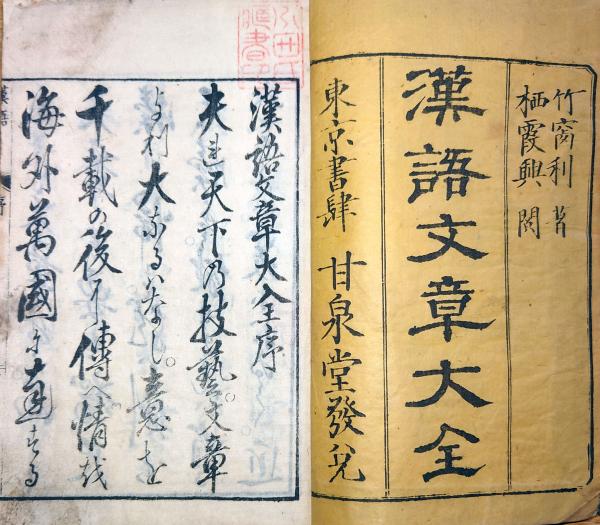 竹窗利 著
栖霞興 閲
漢語文章大全
東京書肆 甘泉堂發兌
漢語文章大全序
夫れ天下の技藝。文章
より大なるハなし。意を
千載の後に傳へ情を
海外萬國に通する
漢語 序